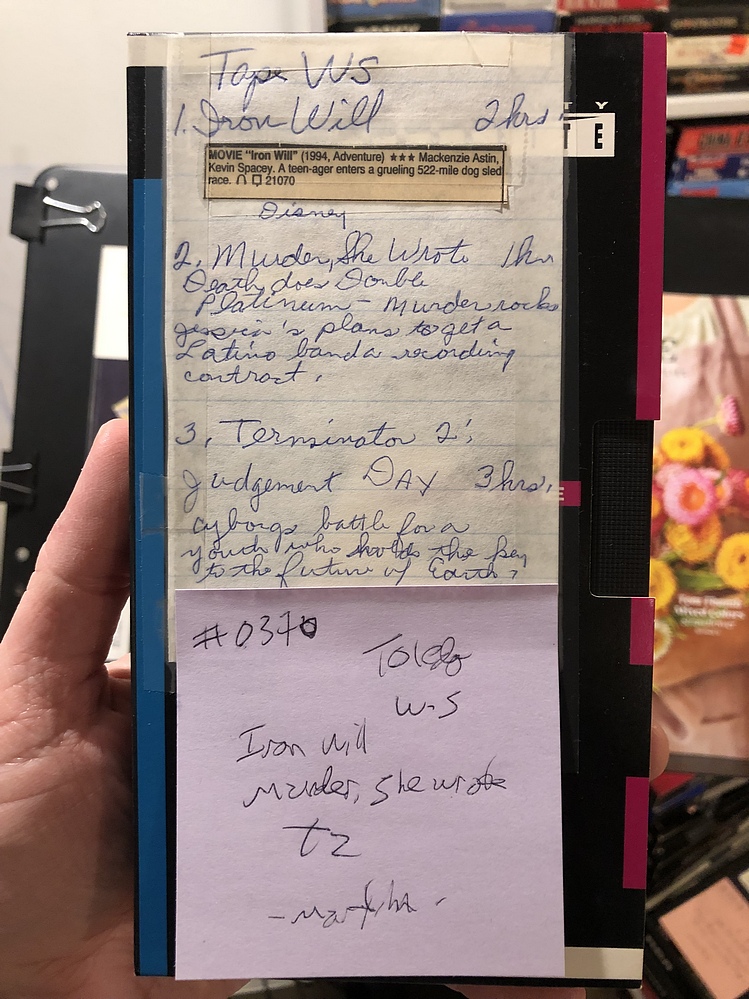 Tape W5
1. Iron Will 2 hrs
MOVIE "Iron Will" (1994, Adventure) ★★★ Mackenzie Astin,
Kevin Spacey. A teen-ager enters a grueling 522-mile dog sled
race. 21070
Disney
2. Murder, She Wrote 1 hr
Death does Double
Platinum - Murder rocks
Jessica's plans to get a
Latino band a recording
contract.
3. Terminator 2:
Judgement DAY 3 hrs.
Cyborgs battle for a
youth who holds the key
to the future of Earth.
#0370
Toledo
W-5
Iron Will
Murder, she wrote
T2
TY
TE
E